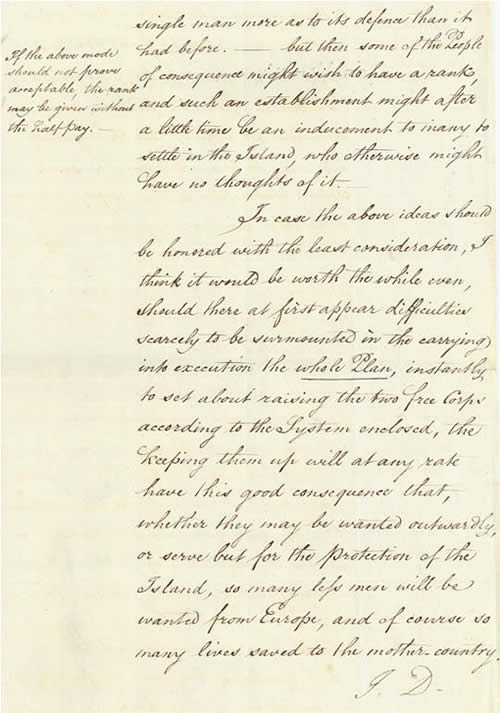 single man more as to its defence than it
had before. — but then some of the People
of consequence might wish to have a rank,
and such an establishment might after
a little time be an inducement to many to
settle in the Island, who otherwise might
have no thoughts of it. —
If the above mode
should not prove
acceptable, the rank
may be given without
the half pay. —
In case the above ideas should
be honored with the least consideration, I
think it would be worth the while even,
should there at first appear difficulties
scarcely to be surmounted in the carrying
into execution the whole Plan, instantly
to set about raising the two free Corps
according to the System enclosed, the
keeping them up will at any rate
have this good consequence that,
whether they may be wanted outwardly,
or serve but for the Protection of the
Island, so many less men will be
wanted from Europe, and of course so
many lives saved to the mother-country.
J. D —